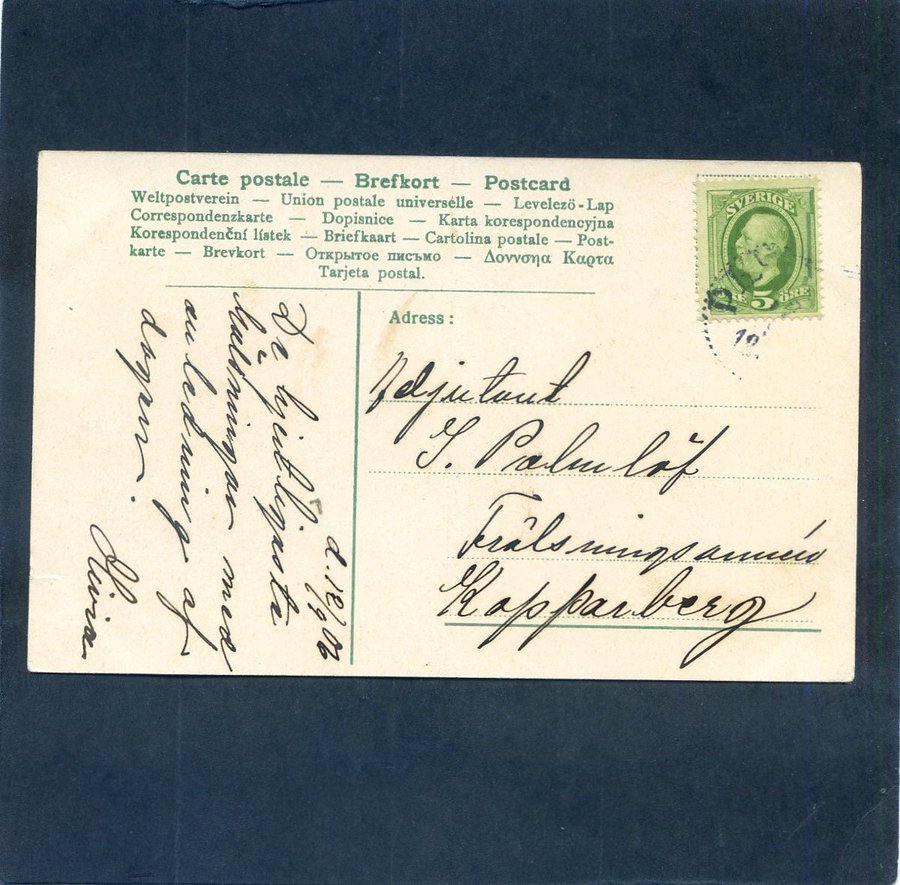 Carte postale — Brefkort — Postcard
Weltpostverein — Union postale universelle — Levelező-Lap
Correspondenzkarte — Dopisnice — Karta korespondencyjna
Korespondenční lístek — Briefkaart — Cartolina postale — Post-
karte — Brevkort — Открытое письмо — Δοννσηα Καρτα
Tarjeta postal.
SVERIGE
5 ÖRE
Adress:
Adjutant
S. Palmlöf
Frälsningsarmén
Kopparberg
d. 12/9 06
De hjertligaste
hälsningar med
anledning af
dagen.